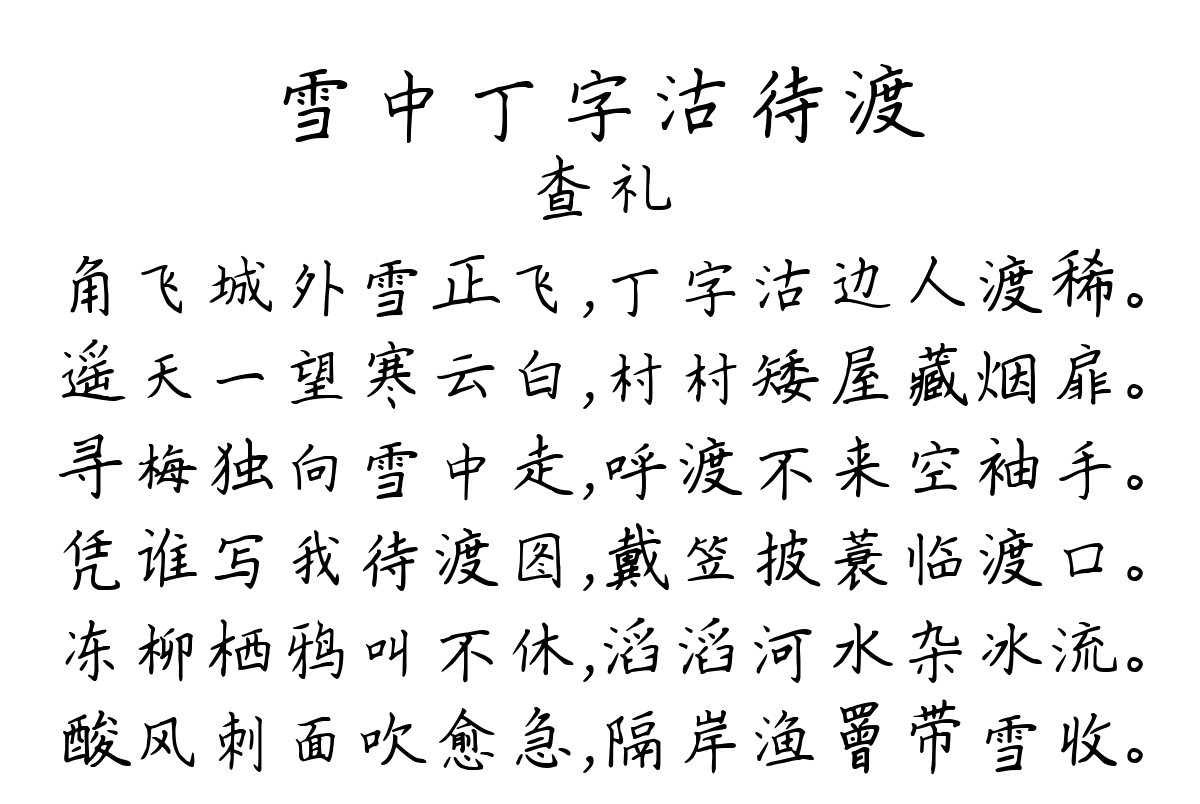 雪中丁字沽待渡
查礼
角飞城外雪正飞,丁字沽边人渡稀。
遥天一望寒云白,村村矮屋藏烟扉。
寻梅独向雪中走,呼渡不来空袖手。
凭谁写我待渡图,戴笠披蓑临渡口。
冻柳栖鸦叫不休,滔滔河水杂冰流。
酸风刺面吹愈急,隔岸渔罾带雪收。